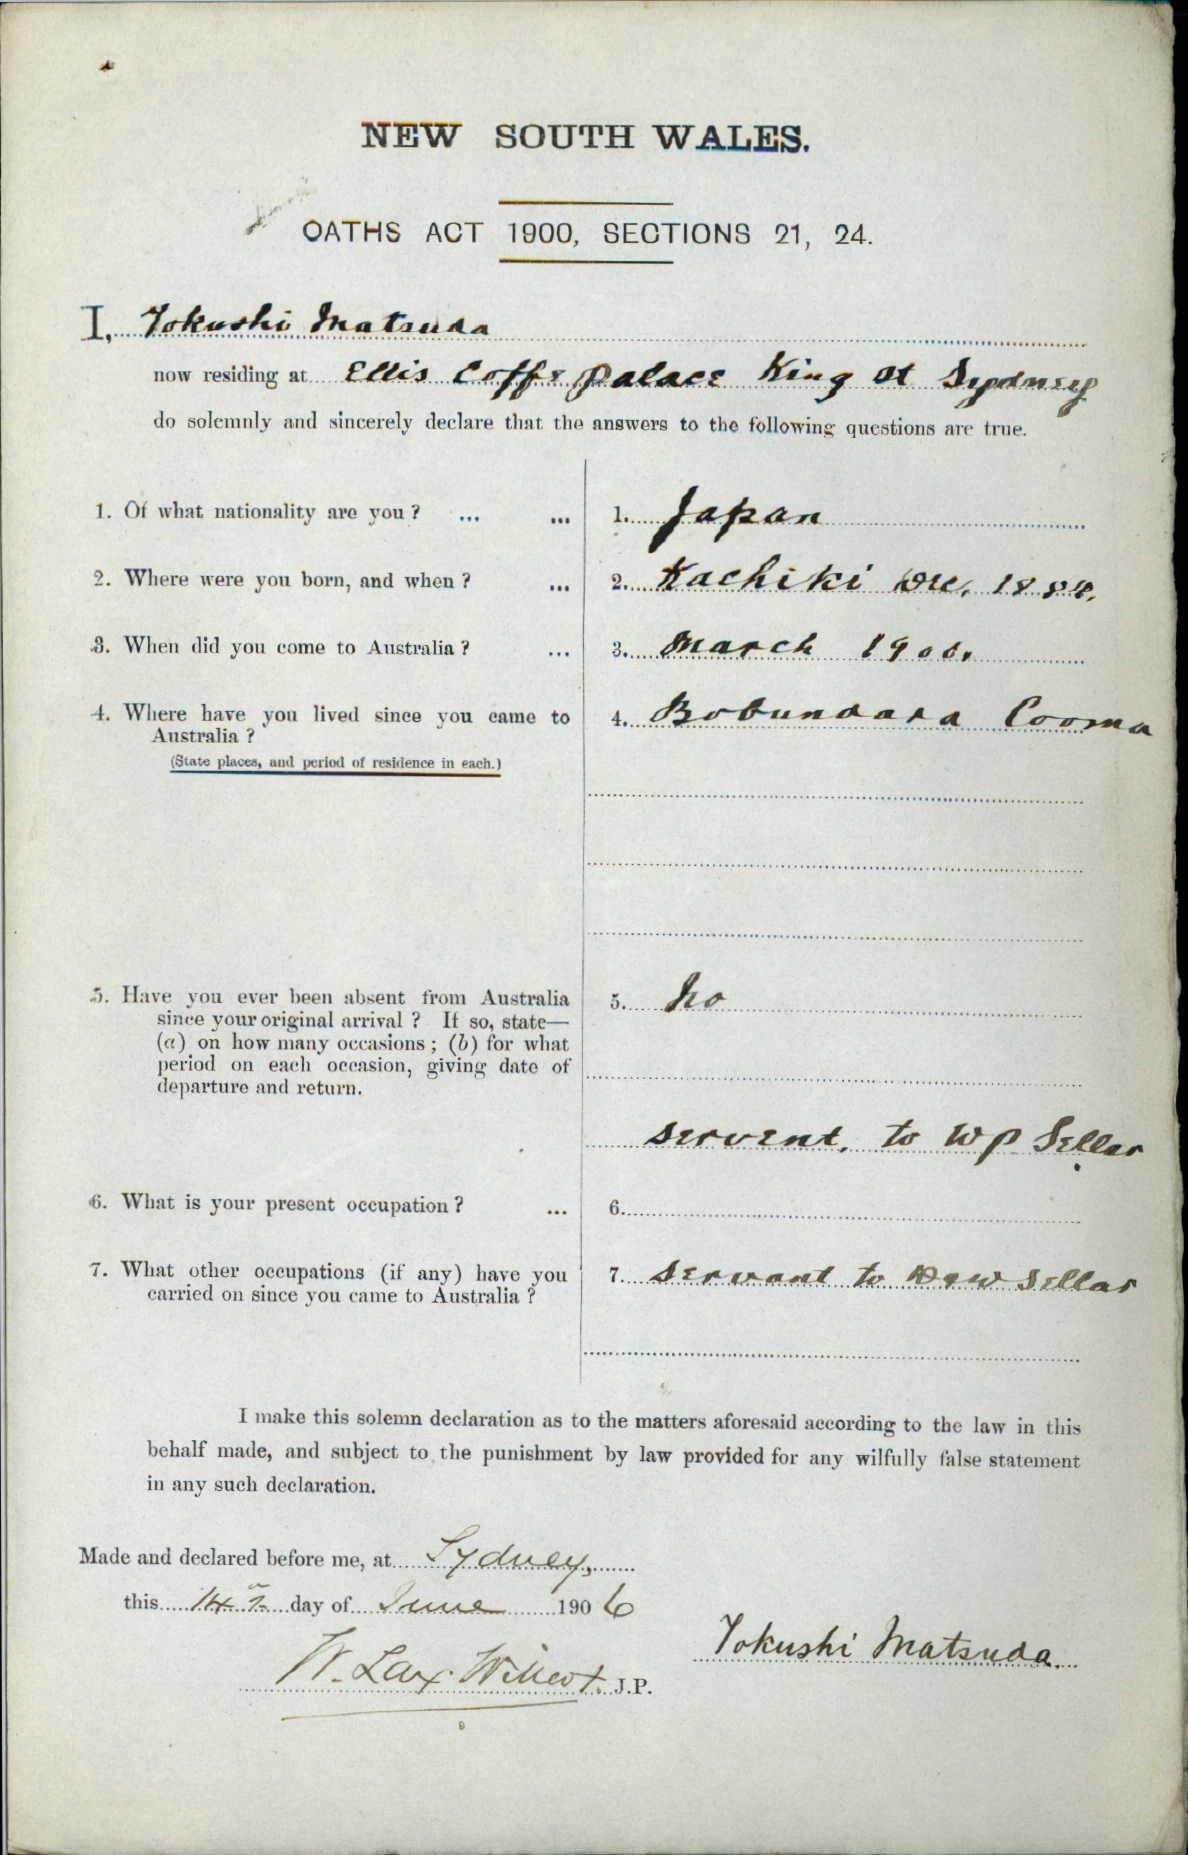 NEW SOUTH WALES.
OATHS ACT 1900, SECTIONS 21, 24.
I, Yokushi Matsuda
now residing at Ellis Coffe palace King st Sydney
do solemnly and sincerely declare that the answers to the following questions are true.
1. Of what nationality are you ? ... ... 1. Japan
2. Where were you born, and when ? ... 2. Kachiki Dec. 1884.
3. When did you come to Australia ? ... 3. March 1906.
4. Where have you lived since you came to 4. Bobundara Cooma
Australia ?
(State places, and period of residence in each.)
5. Have you ever been absent from Australia 5. No
since your original arrival ? If so, state—
(a) on how many occasions ; (b) for what
period on each occasion, giving date of
departure and return.
servent. to WP Sellar
6. What is your present occupation ? ... 6.
7. What other occupations (if any) have you 7. servant to Sellar
carried on since you came to Australia ?
I make this solemn declaration as to the matters aforesaid according to the law in this
behalf made, and subject to the punishment by law provided for any wilfully false statement
in any such declaration.
Made and declared before me, at Sydney,
this 14th day of June 1906
Yokushi Matsuda.
W. J.P.